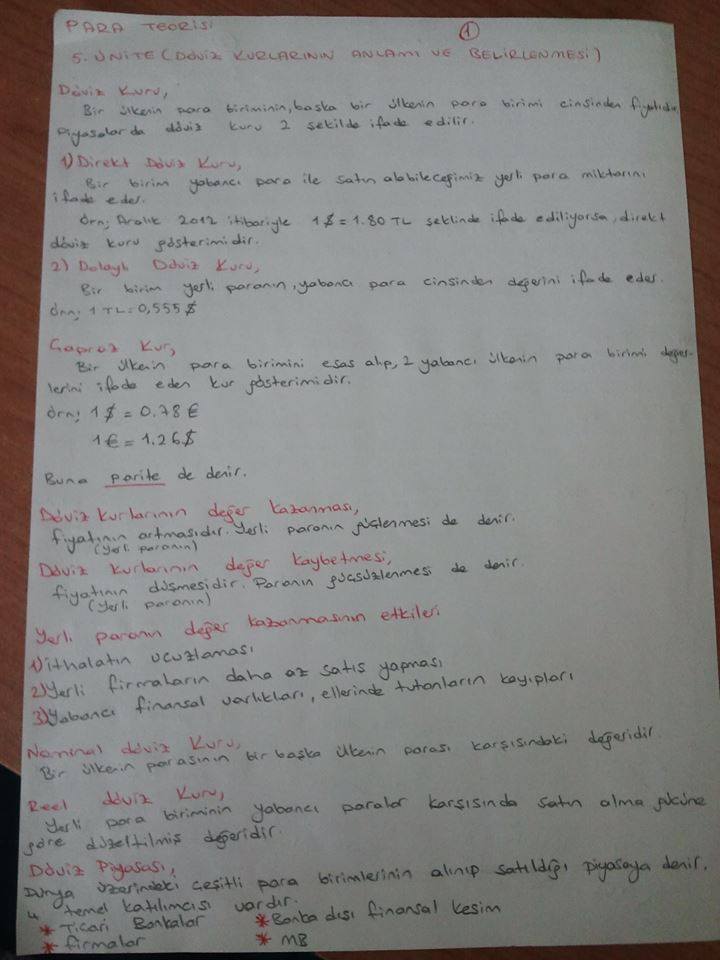 PARA TEORİSİ
1
5. ÜNİTE (DÖVİZ KURLARININ ANLAMI VE BELİRLENMESİ)
Döviz Kuru,
Bir ülkenin para biriminin, başka bir ülkenin para birimi cinsinden fiyatıdır.
Piyasalarda döviz kuru 2 şekilde ifade edilir.
1) Direkt Döviz Kuru,
Bir birim yabancı para ile satın alabileceğimiz yerli para miktarını
ifade eder.
Örn; Aralık 2012 itibariyle 1$ = 1.80 TL şeklinde ifade ediliyorsa, direkt
döviz kuru gösterimidir.
2) Dolaylı Döviz Kuru,
Bir birim yerli paranın, yabancı para cinsinden değerini ifade eder.
Örn; 1 TL = 0,555 $
Çapraz Kur,
Bir ülkenin para birimini esas alıp, 2 yabancı ülkenin para birimi değer-
lerini ifade eden kur gösterimidir.
Örn; 1 $ = 0.78 €
1 € = 1.26 $
Buna parite de denir.
Döviz kurlarının değer kazanması,
fiyatının artmasıdır. Yerli paranın güçlenmesi de denir.
(Yerli paranın)
Döviz kurlarının değer kaybetmesi,
fiyatının düşmesidir. Paranın güçsüzlenmesi de denir.
(Yerli paranın)
Yerli paranın değer kazanmasının etkileri
1) İthalatın ucuzlaması
2) Yerli firmaların daha az satış yapması
3) Yabancı finansal varlıkları, ellerinde tutanların kayıpları
Nominal döviz Kuru,
Bir ülkenin parasının bir başka ülkenin parası karşısındaki değeridir.
Reel döviz Kuru,
Yerli para biriminin yabancı paralar karşısında satın alma gücüne
göre düzeltilmiş değeridir.
Döviz Piyasası,
Dünya üzerindeki çeşitli para birimlerinin alınıp satıldığı piyasaya denir.
4 temel katılımcısı vardır.
* Ticari Bankalar * Banka dışı finansal kesim
* firmalar * MB